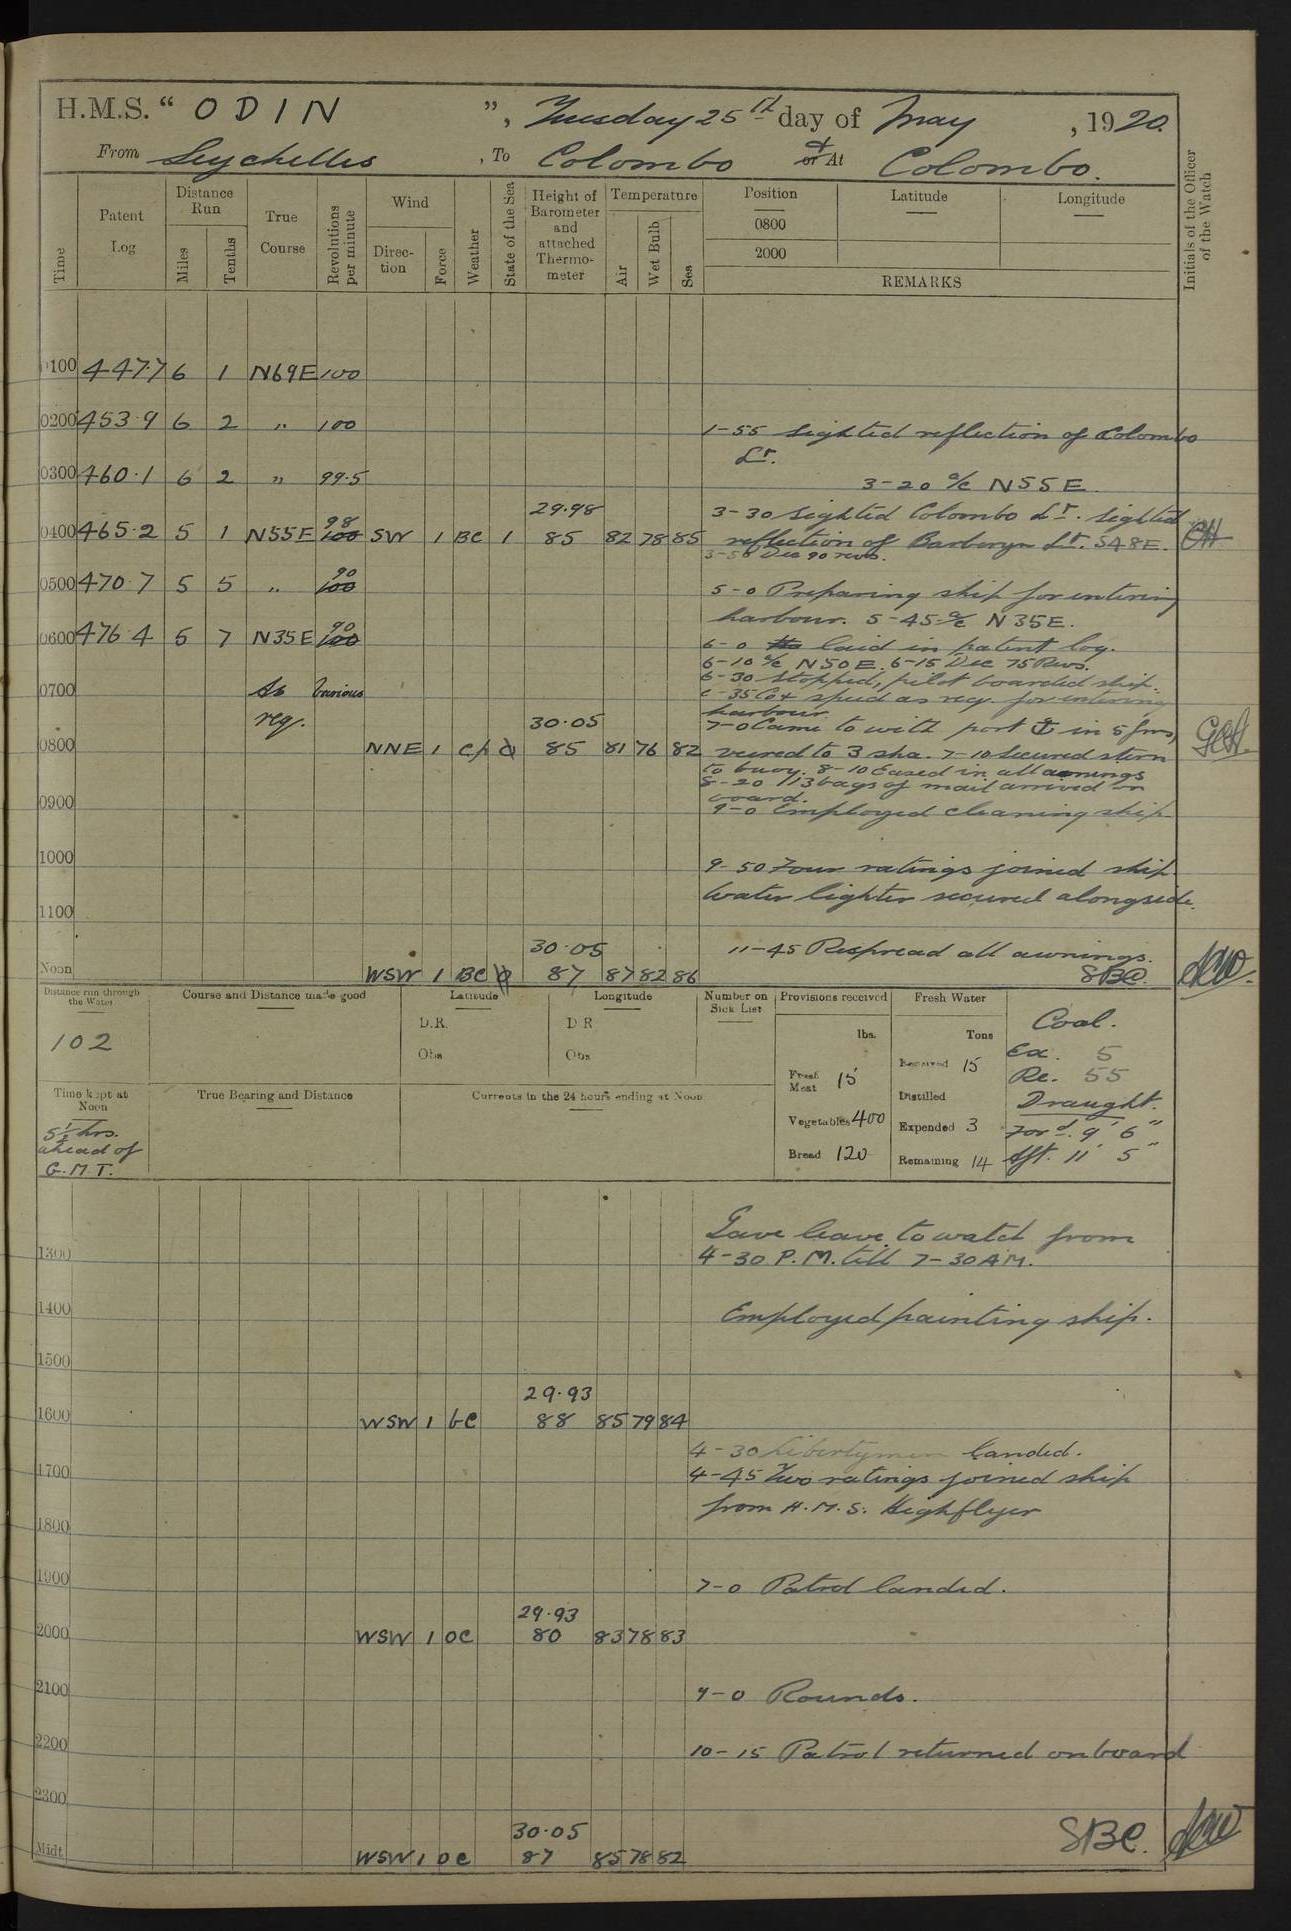 H.M.S. “ ODIN ”, Tuesday 25th day of May , 1920.
From Seychelles , To Colombo or & At Colombo.
Time
Patent Log
Distance Run
Miles
Tenths
True Course
Revolutions per minute
Wind
Direc-tion
Force
Weather
State of the Sea
Height of Barometer and attached Thermo-meter
Temperature
Air
Wet Bulb
Sea
Position
0800
2000
Latitude
Longitude
REMARKS
Initials of the Officer of the Watch
0100 447.7 6 1 N69E 100
0200 453.9 6 2 " 100
1-55 Sighted reflection of Colombo
Lt.
0300 460.1 6 2 " 99.5
3-20 a/c N55E
29.98
3-30 Sighted Colombo Lt. Sighted
98
0400 465.2 5 1 N55E 100 SW 1 BC 1 85 82 78 85 reflection of Barberyn Lt. S48E.
3-50 Dec 90 revs.
90
0500 470.7 5 5 " 100
5-0 Preparing ship for entering
harbour. 5-45 a/c N35E.
90
0600 476.4 5 7 N35E 100
6-0 laid in patent log.
6-10 a/c N50E. 6-15 Dec 75 Revs.
6-30 Stopped, pilot boarded ship.
0700 As various
6-35 Co & speed as req. for entering
harbour
req.
30.05
7-0 Came to with port ⚓ in 5 fms,
0800 NNE 1 85 81 76 82 veered to 3 sha. 7-10 Secured stern
to buoy. 8-10 Eased in all awnings
8-20 113 bags of mail arrived on
board.
0900
9-0 Employed cleaning ship
1000
9-50 Four ratings joined ship
Water lighter secured alongside.
1100
30.05
11-45 Respread all awnings.
Noon WSW 1 BC 87 87 82 86 SBC.
Distance run through the Water
102
Course and Distance made good
Latitude
D.R.
Obs
Longitude
D R
Obs
Number on Sick List
Provisions received
lbs.
Fresh Meat 15
Vegetables 400
Bread 120
Fresh Water
Tons
Received 15
Distilled
Expended 3
Remaining 14
Coal.
Ex. 5
Re. 55
Draught.
Ford. 9' 6"
Aft. 11' 5"
Time kept at Noon
5½ hrs.
ahead of
G.M.T.
True Bearing and Distance
Currents in the 24 hours ending at Noon
Gave leave to watch from
1300
4-30 P.M. till 7-30 AM.
1400
Employed painting ship.
1500
29.93
1600 WSW 1 bc 88 85 79 84
4-30 Libertymen landed.
1700
4-45 Two ratings joined ship
from H.M.S. Highflyer
1800
1900
7-0 Patrol landed.
29.93
2000 WSW 1 OC 80 83 78 83
2100
9-0 Rounds.
2200
10-15 Patrol returned onboard
2300
30.05
SBC.
Midt. WSW 1 OC 87 85 78 82